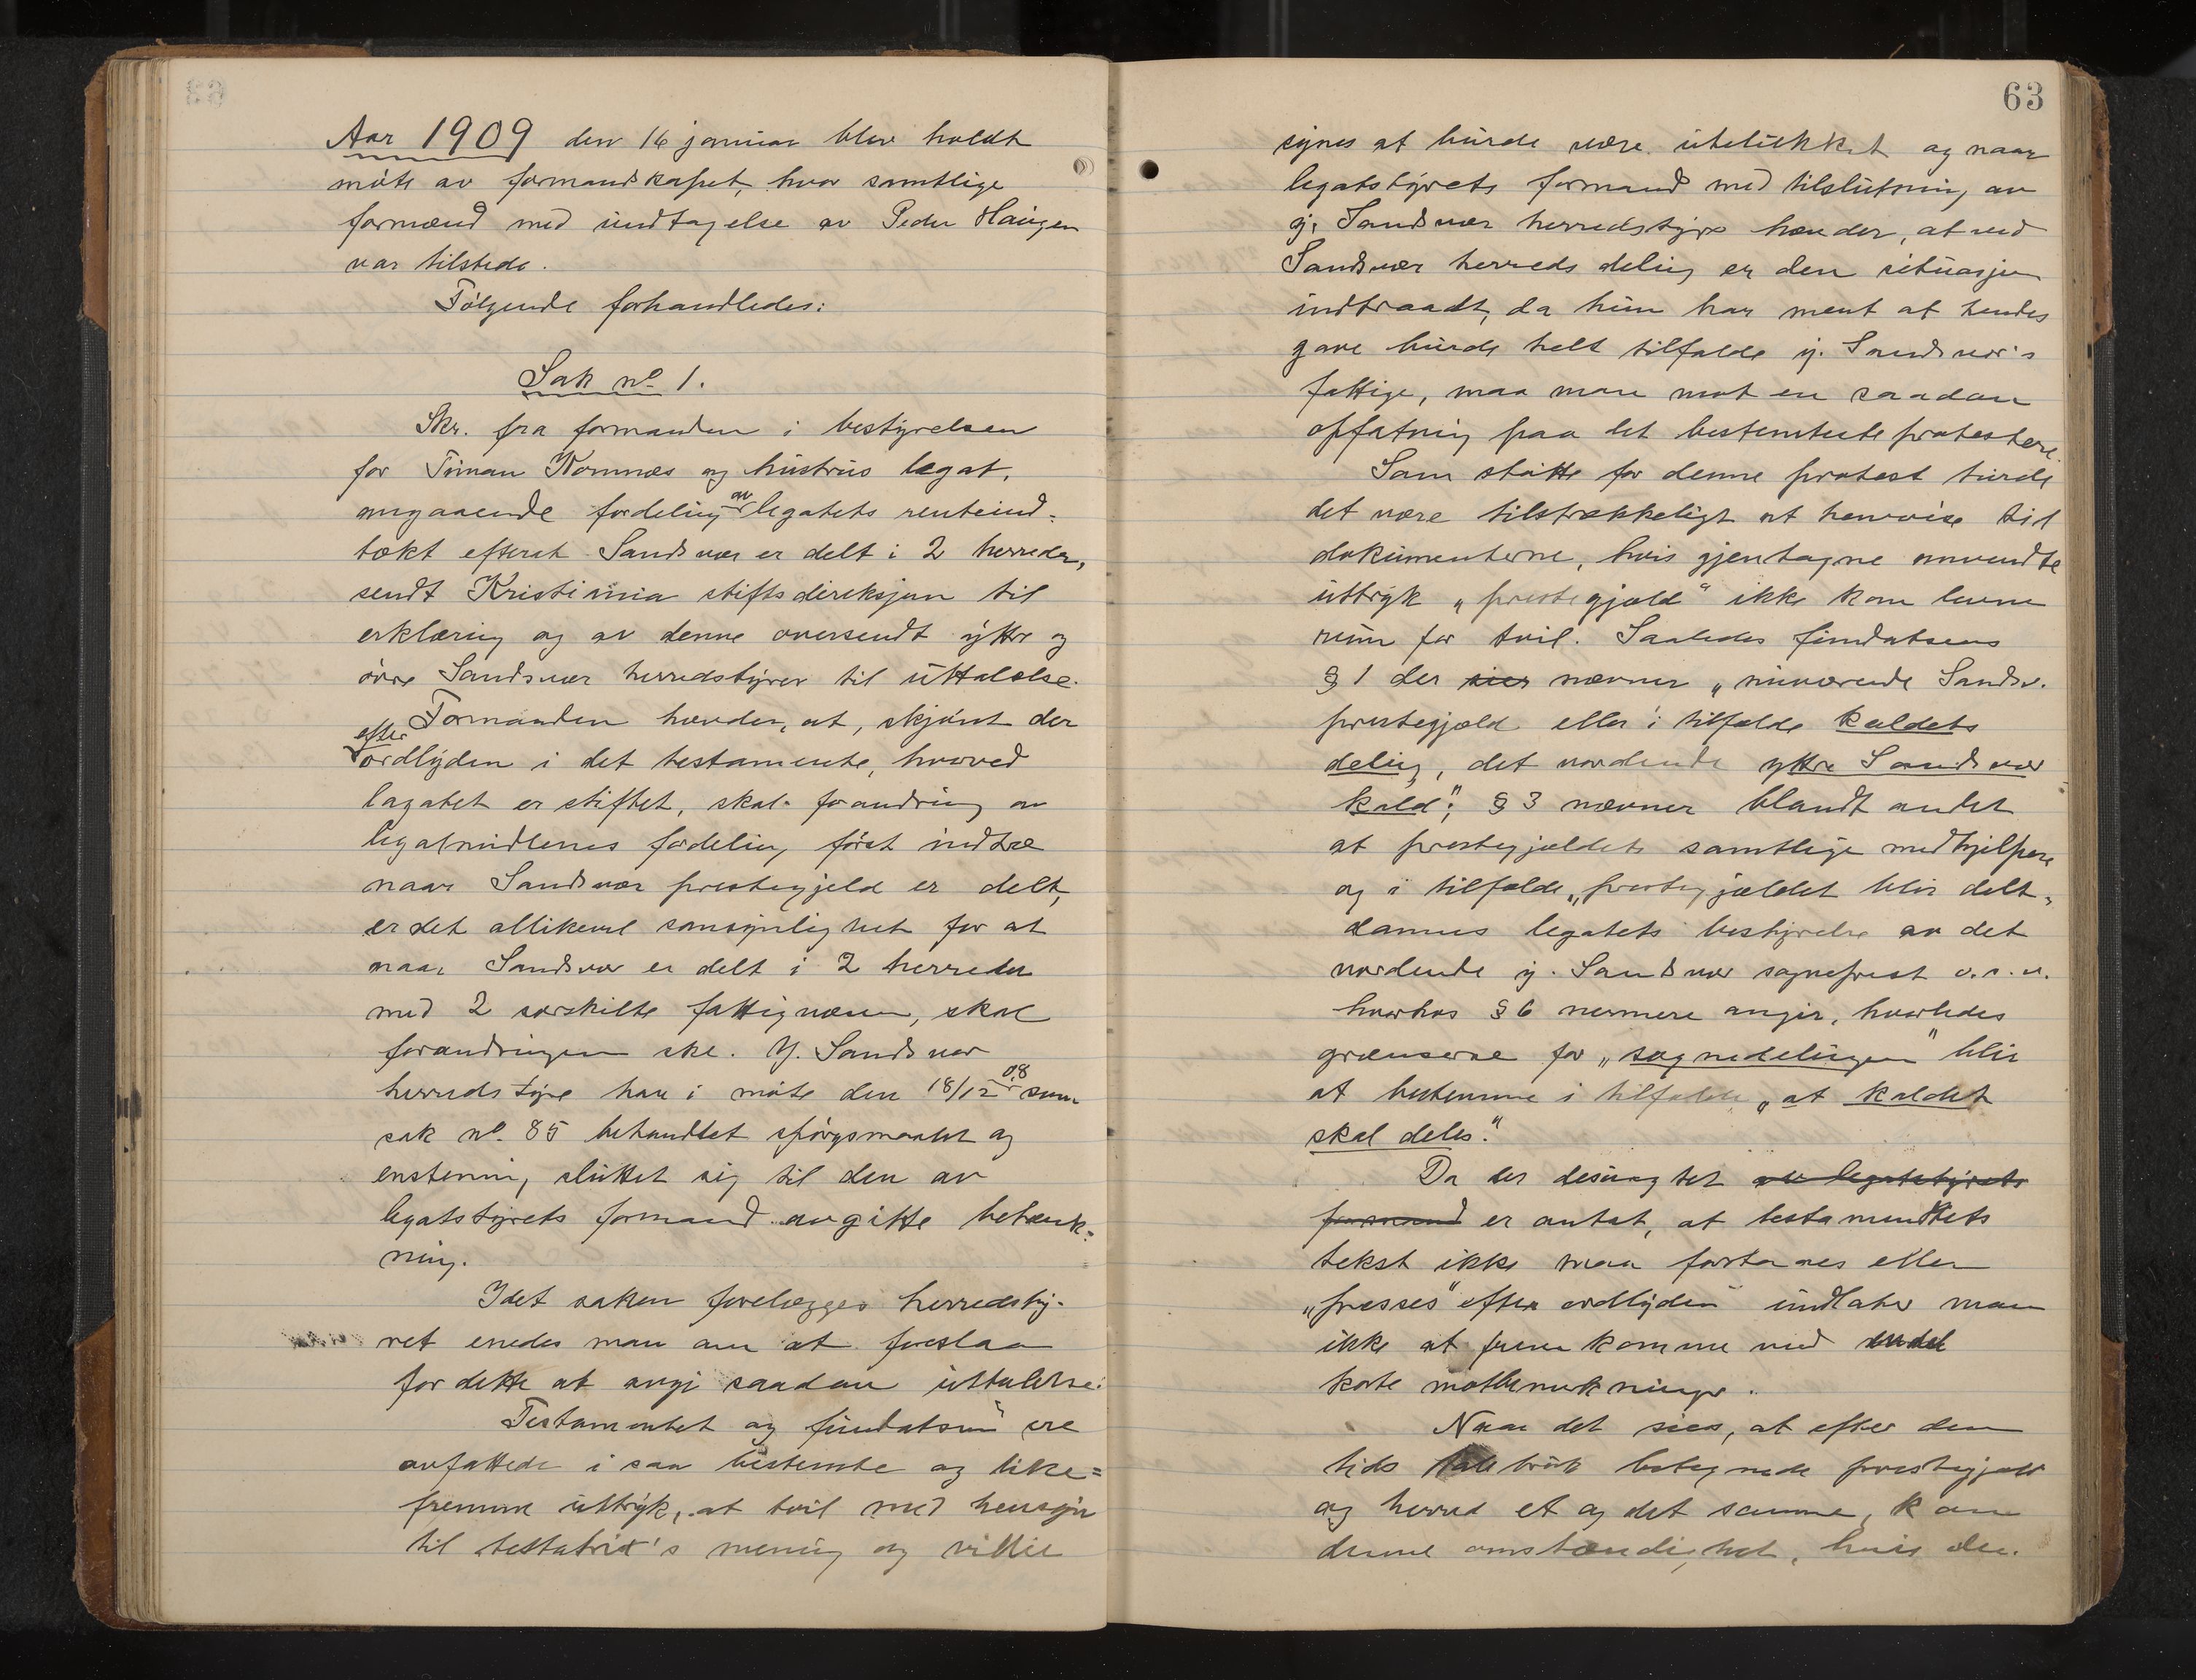 Aar 1909 den 16 januar blev holdt
møte av formandskapet, hvor samtlige
formænd med undtagelse av Peder Haugen
var tilstede.
Følgende forhandledes:
Sak nº 1.
Skr. fra formanden i bestyrelsen
for Timan Kornnæs og hustrus legat,
angaaende fordeling av legatets renteind-
tækt efterat Sandsvær er delt i 2 herreder,
sendt Kristiania stiftsdireksjon til
erklæring og av denne oversendt ytter og
øvre Sandsvær herredstyrer til uttalelse.
Formanden hævder, at, skjønt der
efter ordlyden i det testamente, hvorved
legatet er stiftet, skal forandring av
legatmidlenes fordeling først indtræ
naar Sandsvær prestegjeld er delt,
er det allikevel sansynlighet for at
naar Sandsvær er delt i 2 herreder
med 2 særskilte fattigvæsen, skal
forandringen ske. Y. Sandsvær
herredstyre har i møte den 18/12 08 som
sak nº 85 behandlet spørgsmaalet og
enstemmig sluttet sig til den av
legatstyrets formand avgitte betænk-
ning.
Idet saken forelægges herredsty-
ret enedes man om at foreslaa
for dette at avgi saadan uttalelse:
Testamentet og fundatsen ere
avfattede i saa bestemte og like=
fremme uttryk, at tvil med hensyn
til testatrix's mening og villie
63
synes at burde være utelukket og naar
legatstyrets formand med tilslutning av
y. Sandsvær herredstyre hævder, at ved
Sandsvær herreds deling er den situasjon
indtraadt, da hun har ment at hendes
gave burde helt tilfalde y. Sandsvær's
fattige, maa man mot en saadan
opfatning paa det bestemteste protestere.
Som støtte for denne protest turde
det være tilstrækkeligt at henvise til
dokumenterne, hvis gjentagne anvendte
uttryk „prestegjæld“ ikke kan levne
rum for tvil. Saaledes fundatsens
§ 1 der sier nævner „nuværende Sandsv.
prestegjæld eller i tilfælde kaldets
deling, det vordende yttre Sandsvær
kald“; § 3 nævner blandt andet
at prestegjældets samtlige medhjelpere
og i tilfælde „prestegjældet blir delt“
dannes legatets bestyrelse av det
vordende y. Sandsvær sogneprest o.s.v.
hvorhos § 6 nermere angir, hvorledes
grænserne for „sognedelingen“ blir
at bestemme i tilfælde „at kaldet
skal deles.“
Da der desuagtet av legatstyrets
formand er antat, at testamentets
tekst ikke maa fortolkes eller
„presses“ efter ordlyden undlater man
ikke at fremkomme med endel
korte motbemerkninger.
Naar det sies, at efter den
tids talebruk betegnede prestegjæld
og herred et og det samme, kan
denne omstændighet, hvis den